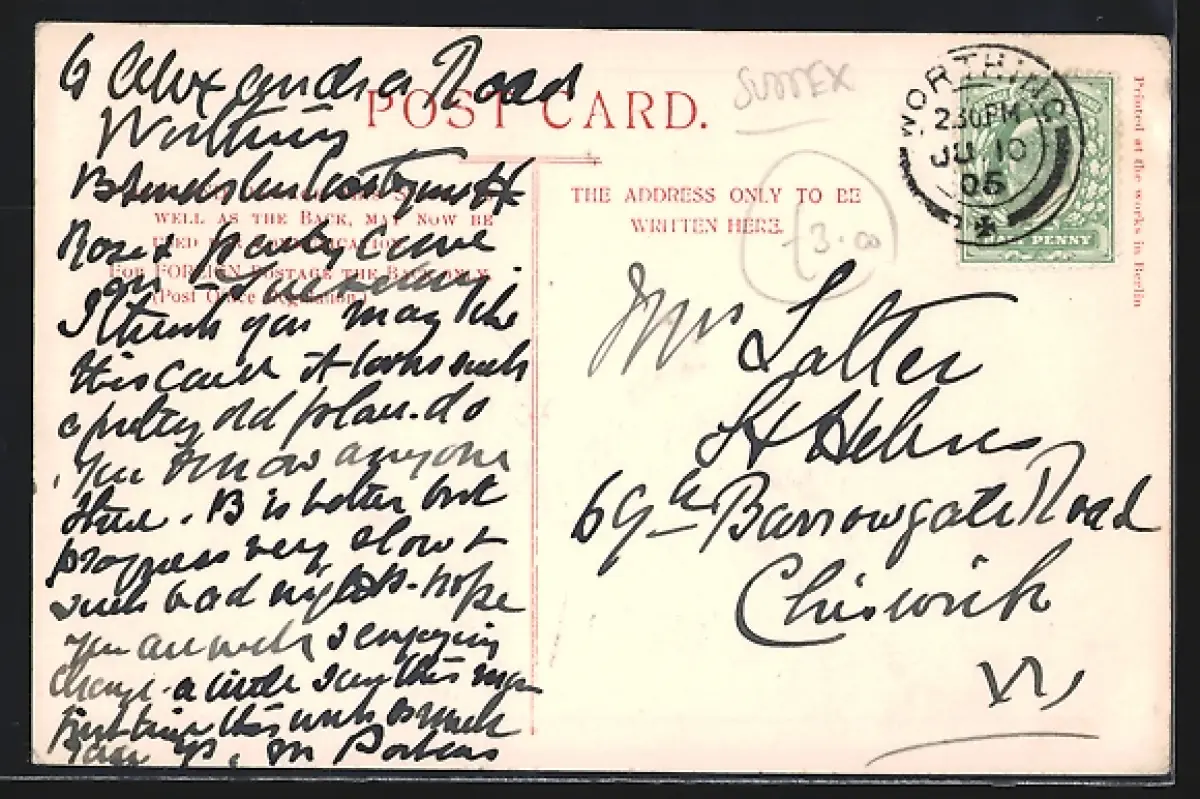 6 Alexandra Road
Worthing
POST CARD.
SUSSEX
WORTHING
2.30 PM
JU 10
05
HALF PENNY
Printed at the works in Berlin
THE ADDRESS ONLY TO BE
WRITTEN HERE.
WELL AS THE BACK, MAY NOW BE
USED FOR COMMUNICATION
FOR FOREIGN POSTAGE THE BACK ONLY.
(Post Office Regulation.)
£3.00
Rose & party came
on
I think you may like
this card it looks such
a pretty old place. do
you know anyone
there. B is better but
progress very slow &
such bad nights. hope
you are well & enjoying
change a little
time this with much
love
Mrs Salter
St Helens
69a Barrowgate Road
Chiswick
W